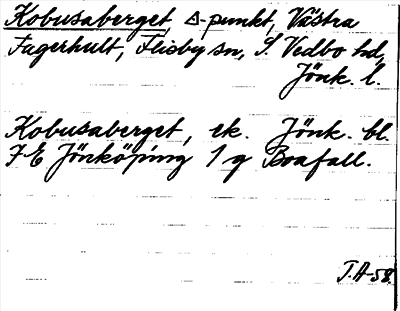 Kobusaberget, △-punkt, Västra
Fagerhult, Flisby sn, S. Vedbo hd,
Jönk. l.
Kobusaberget, ek. Jönk. bl.
7 E Jönköping 1 g Boafall.
T.A-58.